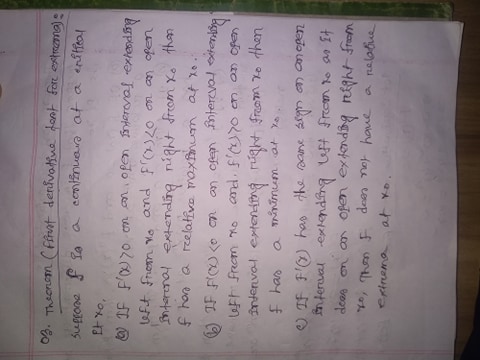 03. Theorem (First derivative test for extrema):
suppose f is a continuous at a critical
pt x₀.
(a) If f'(x)>0 on an open interval extending
left from x₀ and f'(x)<0 on an open
interval extending right from x₀ then
f has a relative maximum at x₀.
(b) If f'(x)<0 on an open interval extending
left from x₀ and f'(x)>0 on an open
interval extending right from x₀ then
f has a minimum at x₀.
c) If f'(x) has the same sign on an open
interval extending left from x₀ as it
does on an open extending right from
x₀, then f does not have a relative
extrema at x₀.